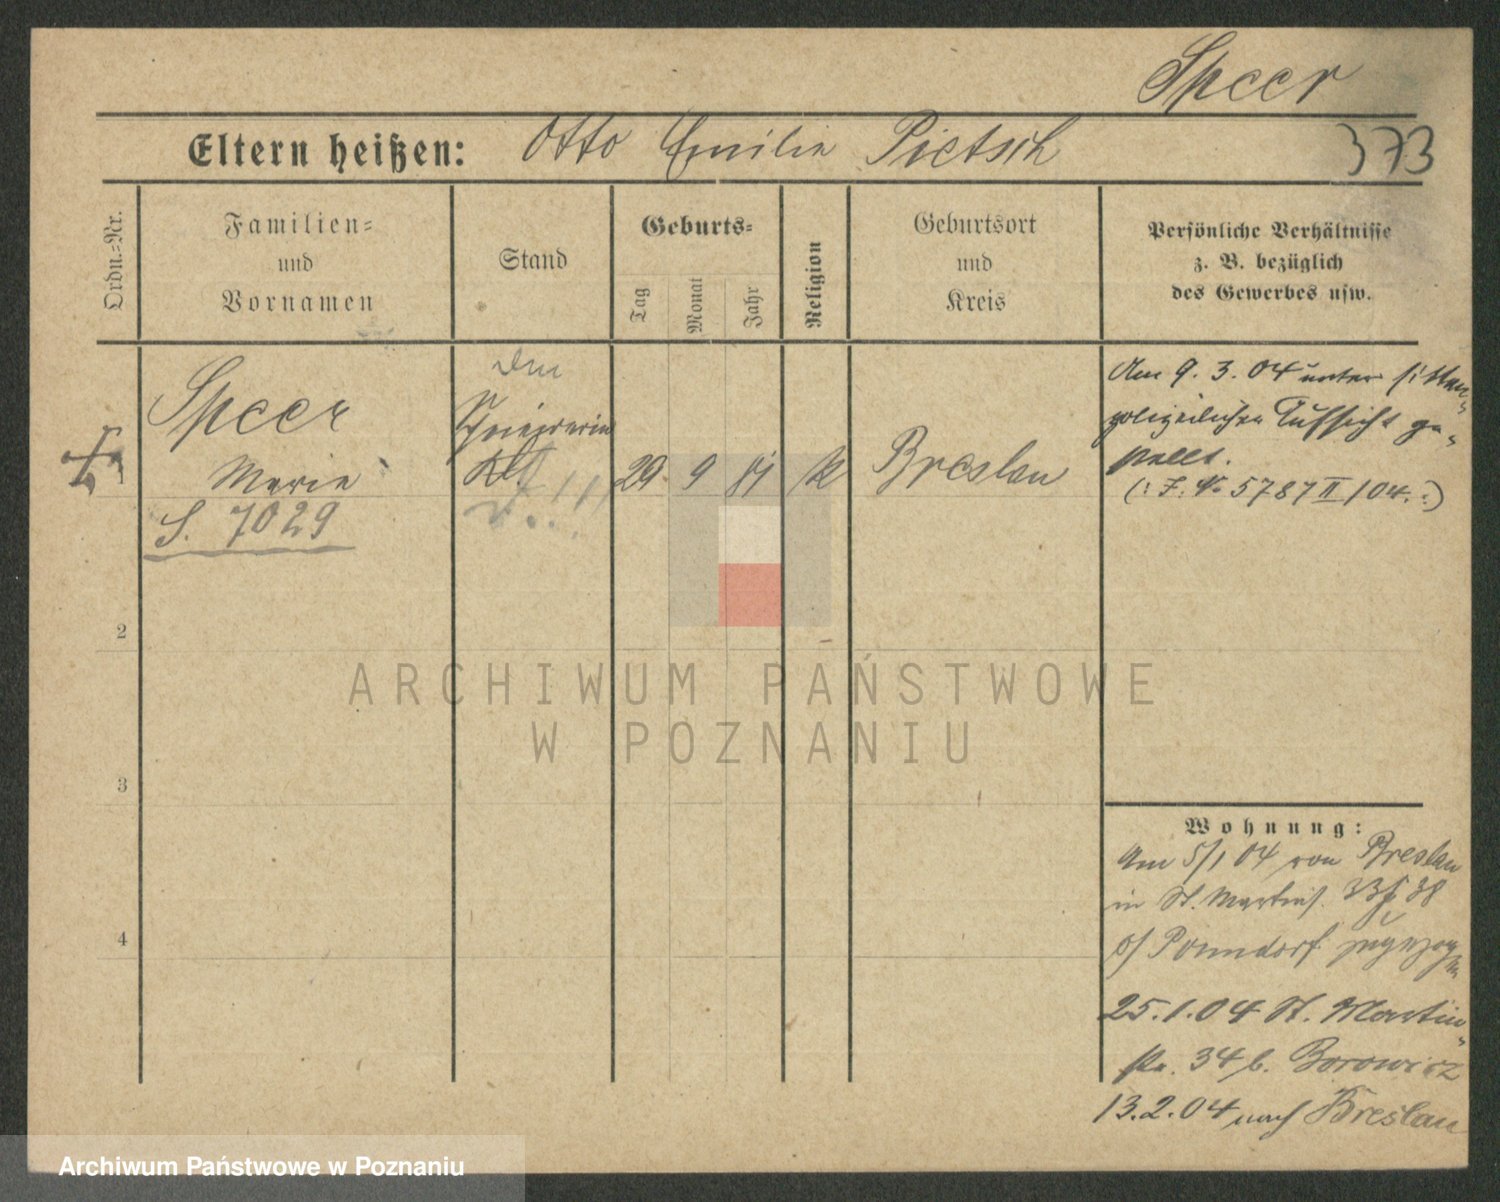 Speer
Eltern heißen: Otto Emilie Pietsch
373
Ordn.=Nr.
Familien=
und
Vornamen
Stand
Geburts=
Tag
Monat
Jahr
Religion
Geburtsort
und
Kreis
Persönliche Verhältnisse
z. B. bezüglich
des Gewerbes usw.
Speer
Marie
S. 7029
29 9 81 k
Breslau
Am 9. 3. 04 unter sitten-
polizeilicher Aufsicht ge-
stellt.
(: J. N. 5787 II/04. :)
2
3
4
Wohnung:
Am 5/1 04 von Breslau
in St. Martinst. 33 38
b/ Ponndorf zugezogen
25.1.04 St. Martin-
str. 34 b. Borowicz
13.2.04 nach Breslau
ARCHIWUM PAŃSTWOWE
W POZNANIU
Archiwum Państwowe w Poznaniu